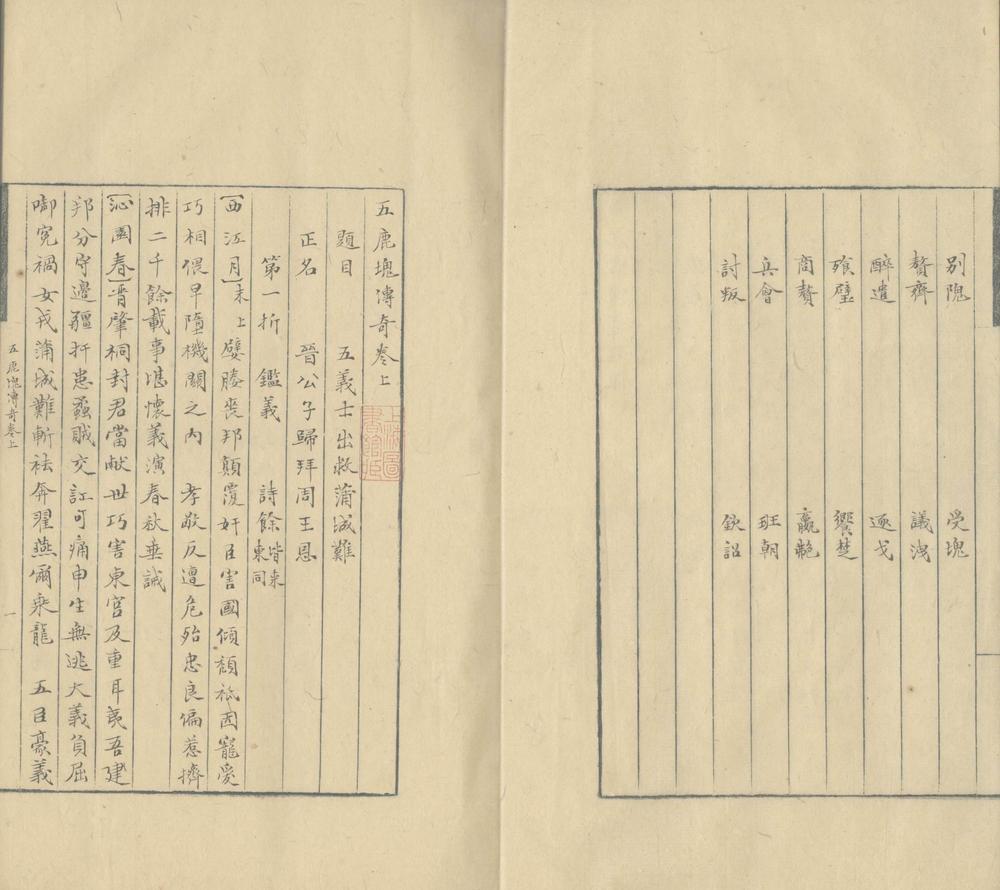 別隗 受塊
贅齊 議洩
醉遣 逐戈
飧璧 饗楚
商贅 嬴
兵會 班朝
討叛 欽詔
五鹿塊傳奇卷上
題目 五義士出救蒲城難
正名 晉公子歸拜周王恩
第一折 鑑義 詩餘皆東同
西江月末上 嬖媵喪邦顛覆奸臣害國傾頹祗因寵愛
巧相偎早墮機關之内 孝敬反遭危殆忠良偏惹擠
排二千餘載事堪懷義演春秋垂誡
沁園春晋肇桐封君當献世巧害東宮及重耳夷吾建
邦分守邊疆扞患蟊賊交訌可痛申生無逃大義負屈
啣寃禍女戎蒲城難斬袪奔翟燕爾乘龍 五臣豪義
五鹿塊傳奇卷上
一
上海圖書館藏